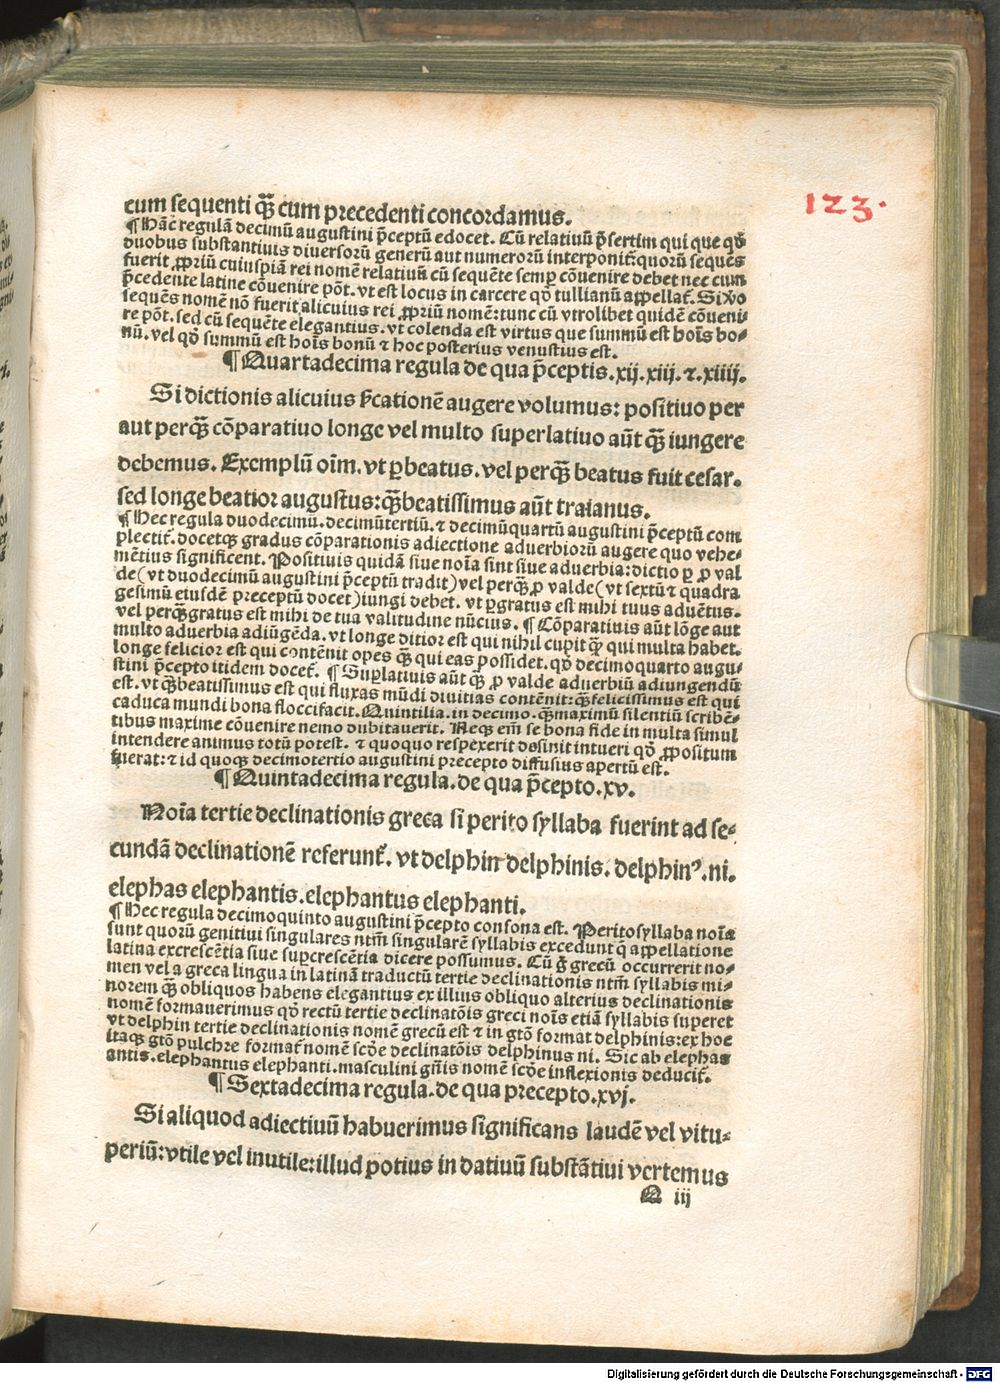 123.
cum sequenti qȝ̃ cum precedenti concordamus.
¶ Hāc regulā decimū augustini p̄ceptū edocet. Cū relatiuū p̄sertim qui que qď
duobus substantiuis diuersorū generū aut numerorū interponit᷑: quorū sequēs
fuerit ꝓpriū cuiuspiā rei nomē relatiuū cū sequēte semꝑ cōuenire debet nec cum
p̄cedente latine cōuenire pōt. vt est locus in carcere qď tullianū appellat᷑. Si ꝟo
sequēs nomē nō fuerit alicuius rei ꝓpriū nomē: tunc cū vtrolibet quidē cōueni-
re pōt. sed cū sequēte elegantius. vt colenda est virtus que summū est hoīs bo-
nū. vel qď summū est hoīs bonū ⁊ hoc posterius venustius est.
¶ Quartadecima regula de qua p̄ceptis .xij. xiij. ⁊ .xiiij.
Si dictionis alicuius significationē augere volumus: positiuo per
aut perqȝ̃ cōparatiuo longe vel multo superlatiuo aūt qȝ̃ iungere
debemus. Exemplū oīm. vt ꝑbeatus. vel perqȝ̃ beatus fuit cesar.
sed longe beatior augustus: qȝ̃beatissimus aūt traianus.
¶ Hec regula duodecimū. decimūtertiū. ⁊ decimūquartū augustini p̄ceptū com
plectit᷑. docetqȝ gradus cōparationis adiectione aduerbiorū augere quo vehe-
mētius significent. Positiuis quidā siue noīa sint siue aduerbia: dictio ꝑ ꝓ val
de (vt duodecimū augustini p̄ceptū tradit) vel perqȝ̃ ꝓ valde (vt sextū ⁊ quadra
gesimū eiusdē preceptū docet) iungi debet. vt ꝑgratus est mihi tuus aduētus.
vel perqȝ̃gratus est mihi de tua valitudine nūcius. ¶ Cōparatiuis aūt lōge aut
multo aduerbia adiūgēda. vt longe ditior est qui nihil cupit qȝ̃ qui multa habet.
longe felicior est qui contēnit opes qȝ̃ qui eas possidet. qď decimoquarto augu-
stini p̄cepto itidem docet᷑. ¶ Suꝑlatiuis aūt qȝ̃ ꝓ valde aduerbiū adiungendū
est. vt qȝ̃beatissimus est qui fluxas mūdi diuitias contēnit: qȝ̃felicissimus est qui
caduca mundi bona floccifacit. Quintilia. in decimo. qȝ̃maximū silentiū scribē-
tibus maxime cōuenire nemo dubitauerit. Neqȝ em̄ se bona fide in multa simul
intendere animus totū potest. ⁊ quoquo respexerit desinit intueri qď ꝓpositum
fuerat: ⁊ id quoqȝ decimotertio augustini precepto diffusius apertū est.
¶ Quintadecima regula. de qua p̄cepto .xv.
Noīa tertie declinationis greca si perito syllaba fuerint ad se-
cundā declinationē referunt᷑. vt delphin delphinis. delphinꝰ. ni.
elephas elephantis. elephantus elephanti.
¶ Hec regula decimoquinto augustini p̄cepto consona est. Peritosyllaba noīa
sunt quorū genitiui singulares ntm̄ singularē syllabis excedunt q̇ appellatione
latina excrescētia siue suꝑcrescētia dicere possumus. Cū g̊ grecū occurrerit no-
men vel a greca lingua in latinā traductū tertie declinationis ntm̄ syllabis mi-
norem qȝ̃ obliquos habens elegantius ex illius obliquo alterius declinationis
nomē formauerimus qď rectū tertie declinatōis greci noīs etiā syllabis superet
vt delphin tertie declinationis nomē grecū est ⁊ in gtō format delphinis: ex hoc
itaqȝ gtō pulchre format᷑ nomē scďe declinatōis delphinus ni. Sic ab elephas
antis. elephantus elephanti. masculini gn̄is nomē scďe inflexionis deducit᷑.
¶ Sextadecima regula. de qua precepto .xvj.
Si aliquod adiectiuū habuerimus significans laudē vel vitu-
periū: vtile vel inutile: illud potius in datiuū substātiui vertemus
Q iij
Digitalisierung gefördert durch die Deutsche Forschungsgemeinschaft - DFG